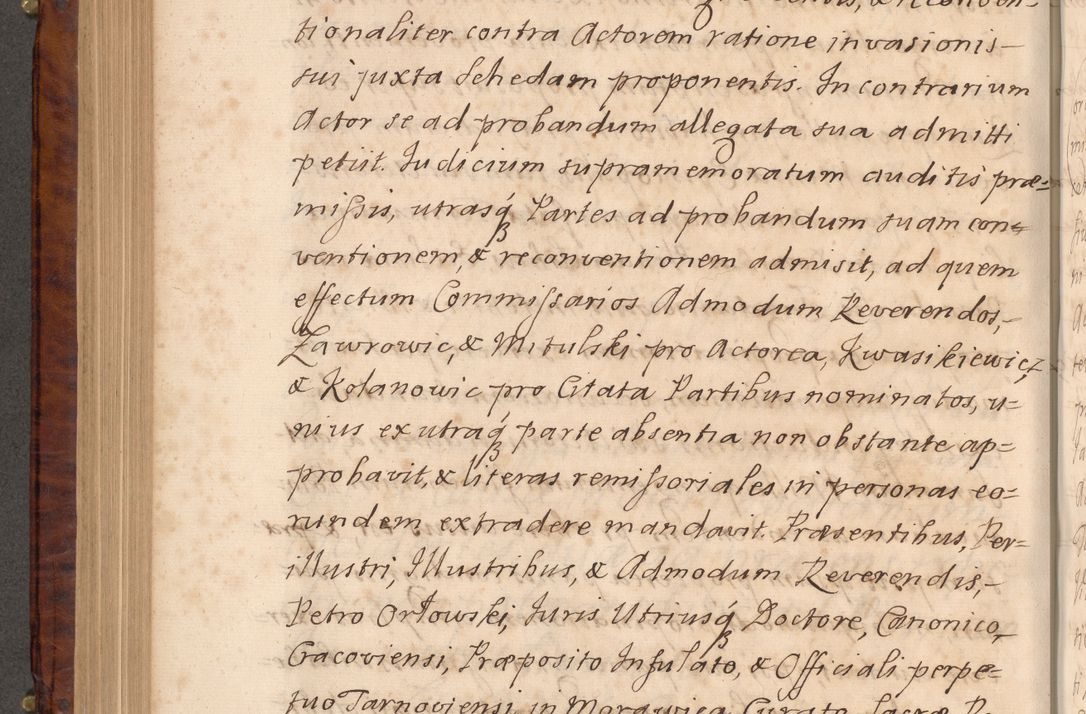 tionaliter contra Actorem ratione invasionis
sui juxta Schedam proponentis. In contrarium
Actor se ad probandum allegata sua admitti
petiit. Judicium supramemoratum auditis præ=
mißis, utrasq́ Partes ad probandum suam con=
ventionem, & reconventionem admisit, ad quem
effectum Commißarios Admodum Reverendos,
Zawrowic, & Mitulski pro Actorea, Kwasikiewicz,
& Kolanowic pro Citata Partibus nominatos, u=
nius ex utraq́ parte absentia non obstante ap=
probavit, & literas remißoriales in personas eo=
rundem extradere mandavit. Præsentibus, Per=
illustri, Illustribus, & Admodum Reverendis,
Petro Orłowski, Juris Utriusq́ Doctore, Canonico,
Cracoviensi, Præposito Infulato, & Officiali perpe=
tuo Tarnoviensi, in Morawica Curato, Sacræ